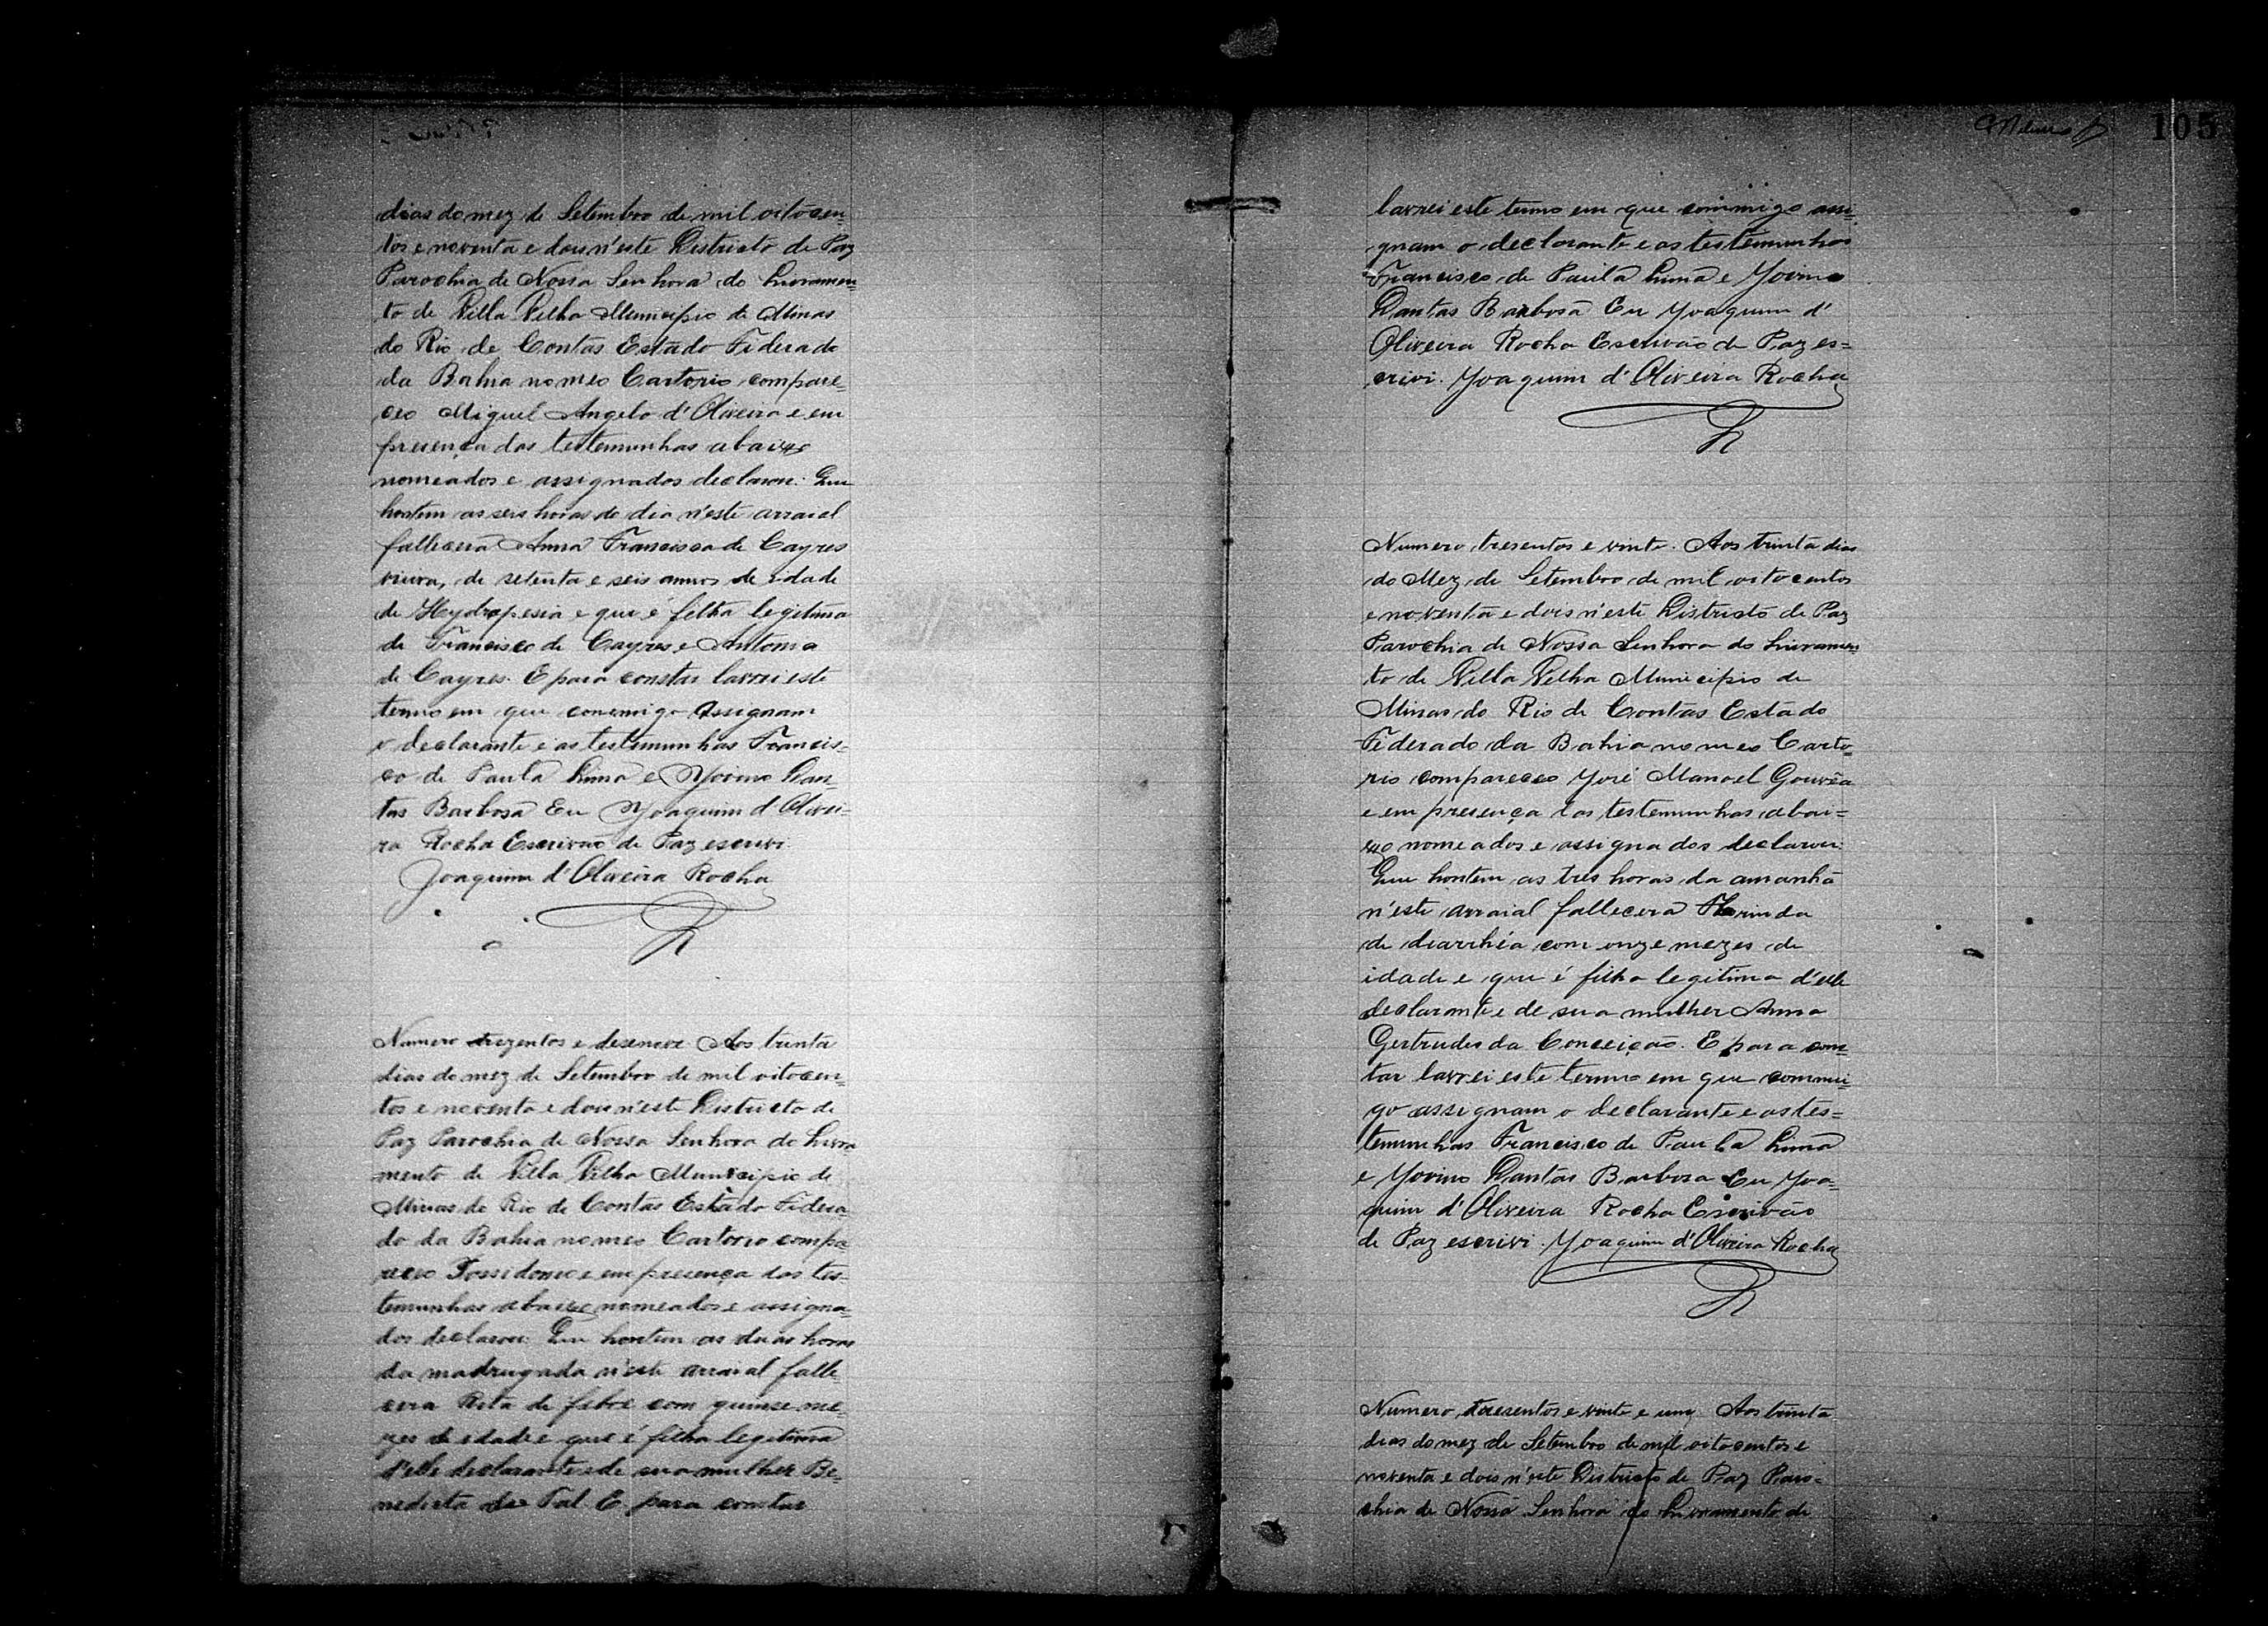 dias do mez de Setembro de mil oitocen-
tos e noventa e dous n'este Districto de Paz
Parochia de Nossa Senhora do Livramen-
to de Villa Velha Municipio de Minas
do Rio de Contas Estado Federado
da Bahia no meo Cartorio compare-
ceo Miguel Angelo d'Oliveira e em
presença das testemunhas abaixo
nomeados e assignados declarou: Que
hontem as seis horas do dia n'este arraial
fallecera Anna Francisca de Cayres
viuva, de setenta e seis annos de idade
de Hydropesia e que é filha legitima
de Francisco de Cayres e Antonia
de Cayres. E para constar lavrei este
termo em que commigo assignam
o declarante e as testemunhas Francis-
co de Paula Lima e Jovino Dan-
tas Barbosa Eu Joaquim d'Olivei-
ra Rocha Escrivão de Paz escrivi.
Joaquim d'Oliveira Rocha
Numero trezentos e desenove Aos trinta
dias do mez de Setembro de mil oitocen-
tos e noventa e dous n'este Districto de
Paz Parochia de Nossa Senhora do Livra
mento de Villa Velha Municipio de
Minas do Rio de Contas Estado Federa-
do da Bahia no meo Cartorio compa-
receo Possidonio e em presença das tes-
temunhas abaixo nomeados e assigna-
dos declarou: Que hontem as duas horas
da madrugada n'este arraial falle-
cera Rita de febre com quinse me-
zes de idade e que é filha legitima
d'elle declarante e de sua mulher Be-
nedicta de Tal E para constar
105
lavrei este termo em que commigo assi-
gnam o declarante e as testemunhas
Francisco de Paula Lima e Jovino
Dantas Barbosa Eu Joaquim d'
Oliveira Rocha Escrivão de Paz es=
crivi. Joaquim d'Oliveira Rocha
Numero tresentos e vinte. Aos trinta dias
do Mez de Setembro de mil oitocentos
e noventa e dois n'este Districto de Paz
Parochia de Nossa Senhora do Livramen-
to de Villa Velha Municipio de
Minas do Rio de Contas Estado
Federado da Bahia no meo Carto-
rio compareceo José Manoel Gouvêa
e em presença das testemunhas abai=
xo nomeados e assignados declarou:
Que hontem as tres horas da amanhã
n'este arraial fallecera Florinda
de diarrhéa com onze mezes de
idade e que é filha legitima d'elle
declarante e de sua mulher Anna
Gertrudes da Conceição. E para cons-
tar lavrei este termo em que commi-
go assignam o declarante e as tes=
temunhas Francisco de Paula Lima
e Jovino Dantas Barbosa Eu Joa-
quim d'Oliveira Rocha Escrivão
de Paz escrivi. Joaquim d'Oliveira Rocha
Numero tresentos e vinte e um Aos trinta
dias do mez de Setembro de mil oitocentos e
noventa e dois n'este Districto de Paz Paro=
chia de Nossa Senhora do Livramento de